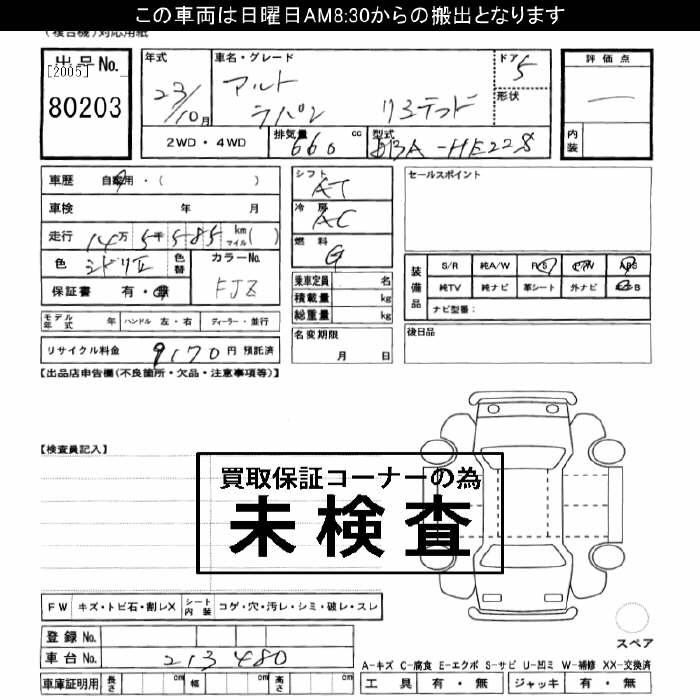 この車両は日曜日AM8:30からの搬出となります
(複合機)対応用紙
出品No.
[2005]
80203
年式
23/10月
車名・グレード
アルト
ラパン リミテッド
ドア
5
形状
評価点
内装
2WD・4WD
排気量 660 cc
型式 DBA-HE22S
車歴 自家用・( )
車検 年 月
走行 14万 5千 585 km マイル( )
色 ミドリⅡ 色替
カラーNo.
FJZ
保証書 有・無
シフト AT
冷房 AC
燃料 G
乗車定員 名
積載量 kg
総重量 kg
セールスポイント
装備品
S/R 純A/W P/S P/W ABS
純TV 純ナビ 革シート 外ナビ
ナビ型番:
モデル年式 年 ハンドル 左・右 ディーラー・並行
名変期限
月 日
後日品
リサイクル料金 9170 円 預託済
【出品店申告欄(不良箇所・欠品・注意事項等)】
【検査員記入】
買取保証コーナーの為
未検査
FW キズ・トビ石・割レX シート内装 コゲ・穴・汚レ・シミ・破レ・スレ
登録No.
車台No. 213480
スペア
車庫証明用 長さ cm 幅 cm 高さ cm
A-キズ C-腐食 E-エクボ S-サビ U-凹ミ W-補修 XX-交換済
工具 有・無 ジャッキ 有・無